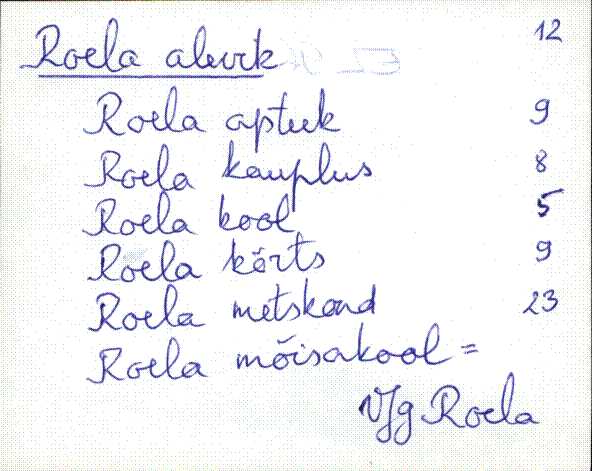 Roela alevik 12
Roela apteek 9
Roela kauplus 8
Roela kool 5
Roela kõrts 9
Roela metskond 23
Roela mõisakool =
VJg Roela